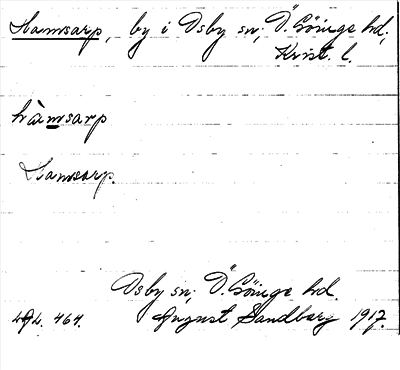 Hamsarp, by i Osby sn; Ö. Göinge hd,
Krist. l.
hàmsarp
Hamsarp.
Osby sn; Ö. Göinge hd.
August Sandberg 1917.
464.